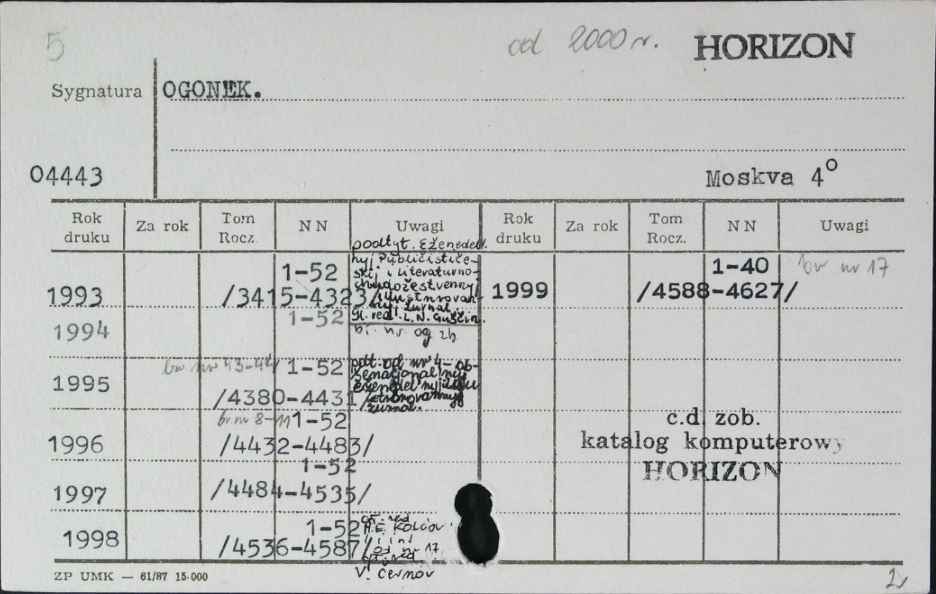 5 od 2000 r. HORIZON
Sygnatura OGONEK.
04443 Moskva 4⁰
Rok druku Za rok Tom Rocz. NN Uwagi Rok druku Za rok Tom Rocz. NN Uwagi
podtyt. Eženedel
nyj Publicističe-
skij i Literaturno-
chudožestvennyj
illustrirovan
nyj žurnal
gl. red. L. N. Guščin.
1993 1-52
/3415-4323/
1999 1-40 br nr 17
/4588-4627/
1994 1-52
br. nr og zb
1995 br nr 43-44 1-52
/4380-4431/
pdt. od nr 4-ob-
žurnal.
1996 br nr 8-11 1-52
/4432-4483/
c.d. zob.
katalog komputerowy
HORIZON
1997 1-52
/4484-4535/
1998 1-52
/4536-4587/
od nr 17
V. Černov
ZP UMK — 61/87 15·000
2v